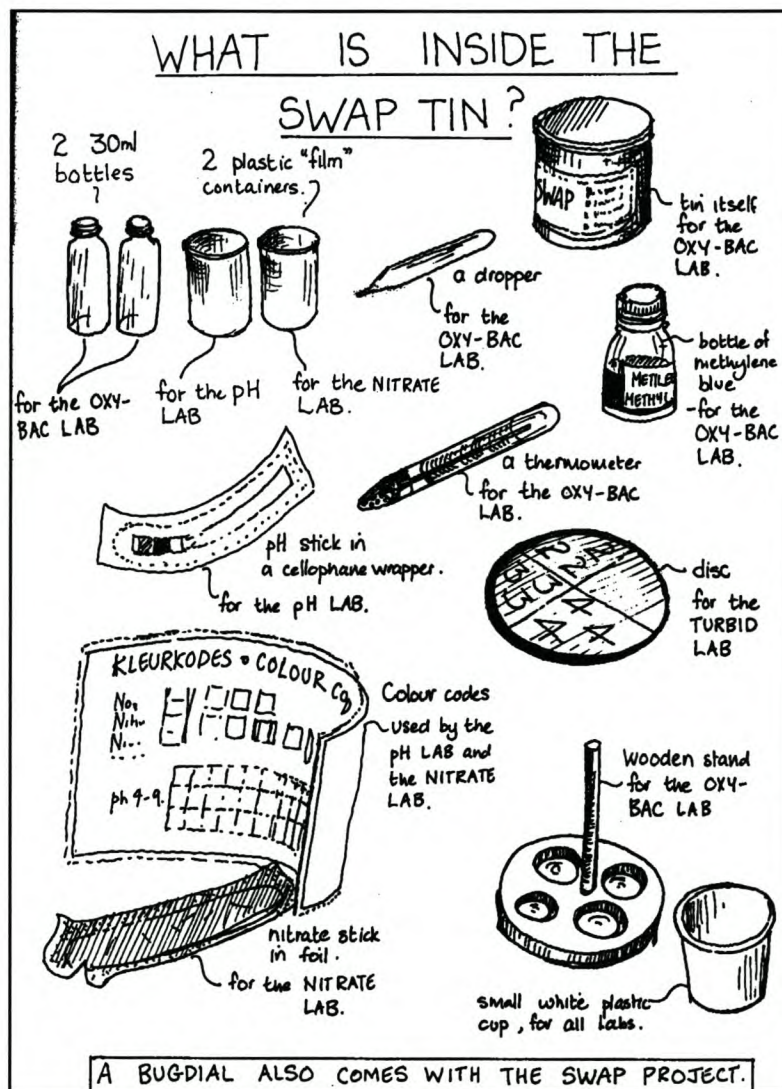 WHAT IS INSIDE THE
SWAP TIN?
2 30ml
bottles
2 plastic "film"
containers.
for the OXY-
BAC LAB
for the pH
LAB
for the NITRATE
LAB.
a dropper
for the
OXY-BAC
LAB.
SWAP
tin itself
for the
OXY-BAC
LAB.
METHYL
bottle of
methylene
blue
-for the
OXY-BAC
LAB.
a thermometer
for the OXY-BAC
LAB.
pH stick in
a cellophane wrapper.
for the pH LAB.
2 2
3 3 3
4 4 4
disc
for the
TURBID
LAB
KLEURKODES • COLOUR CO
ph 4-9.
Colour codes
used by the
pH LAB and
the NITRATE
LAB.
Wooden stand
for the OXY-
BAC LAB
nitrate stick
in foil.
for the NITRATE
LAB.
small white plastic
cup, for all labs.
A BUGDIAL ALSO COMES WITH THE SWAP PROJECT.